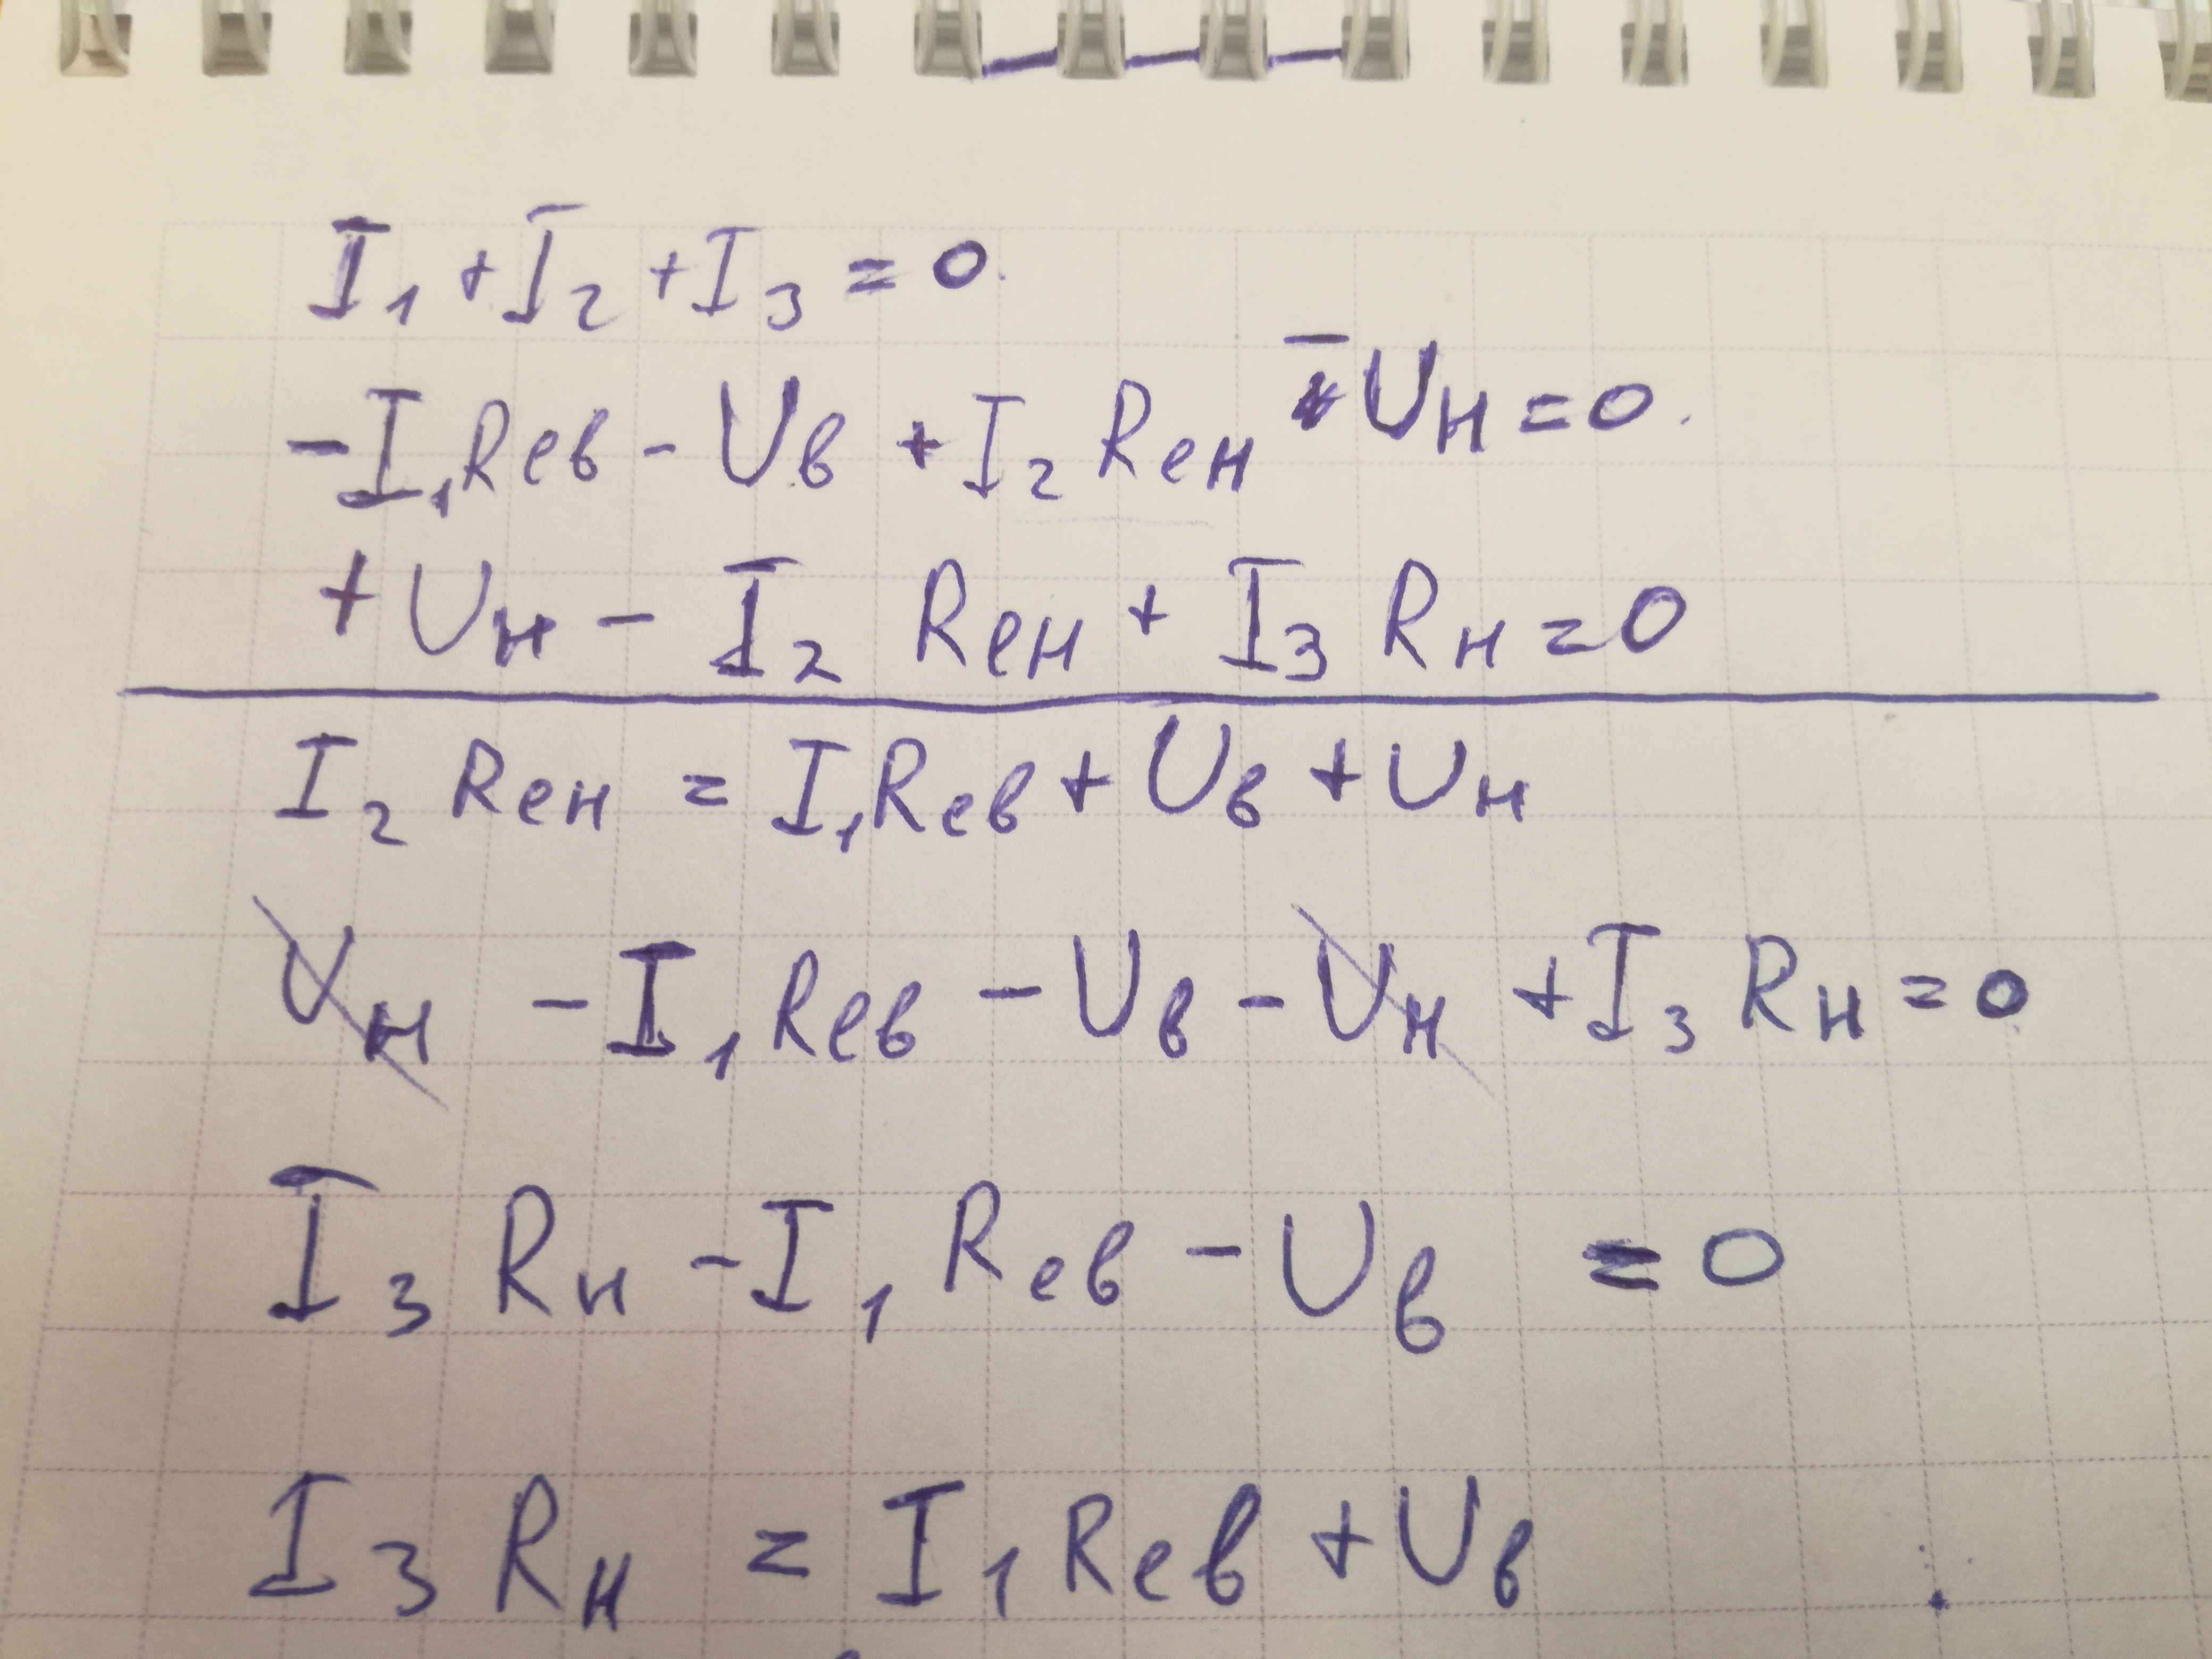 I₁ + I₂ + I₃ = 0.
-I₁Rев - Uв + I₂Rен - Uн = 0.
+ Uн - I₂ Rен + I₃ Rн = 0
I₂ Rен = I₁Rев + Uв + Uн
Uн - I₁Rев - Uв - Uн + I₃ Rн = 0
I₃ Rн - I₁ Rев - Uв = 0
I₃ Rн = I₁ Rев + Uв